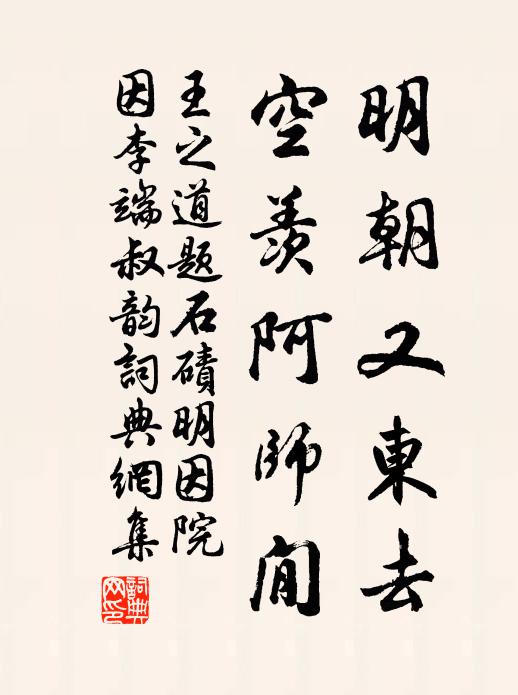 明朝又東去
空羨阿師閒
王之道題石磧明因院
因李端叔韵詞典網集
詞典网印